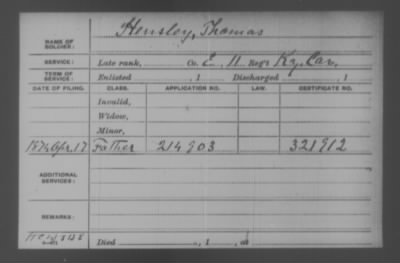 Hensley, Thomas
NAME OF
SOLDIER:
SERVICE: Late rank, Co. E, 11 Reg't Ky. Cav.
TERM OF
SERVICE: Enlisted , 1 Discharged , 1
DATE OF FILING. CLASS. APPLICATION NO. LAW. CERTIFICATE NO.
Invalid,
Widow,
Minor,
1874 Apr. 17 Father 214903 321912
ADDITIONAL
SERVICES:
REMARKS:
Died , 1 , at